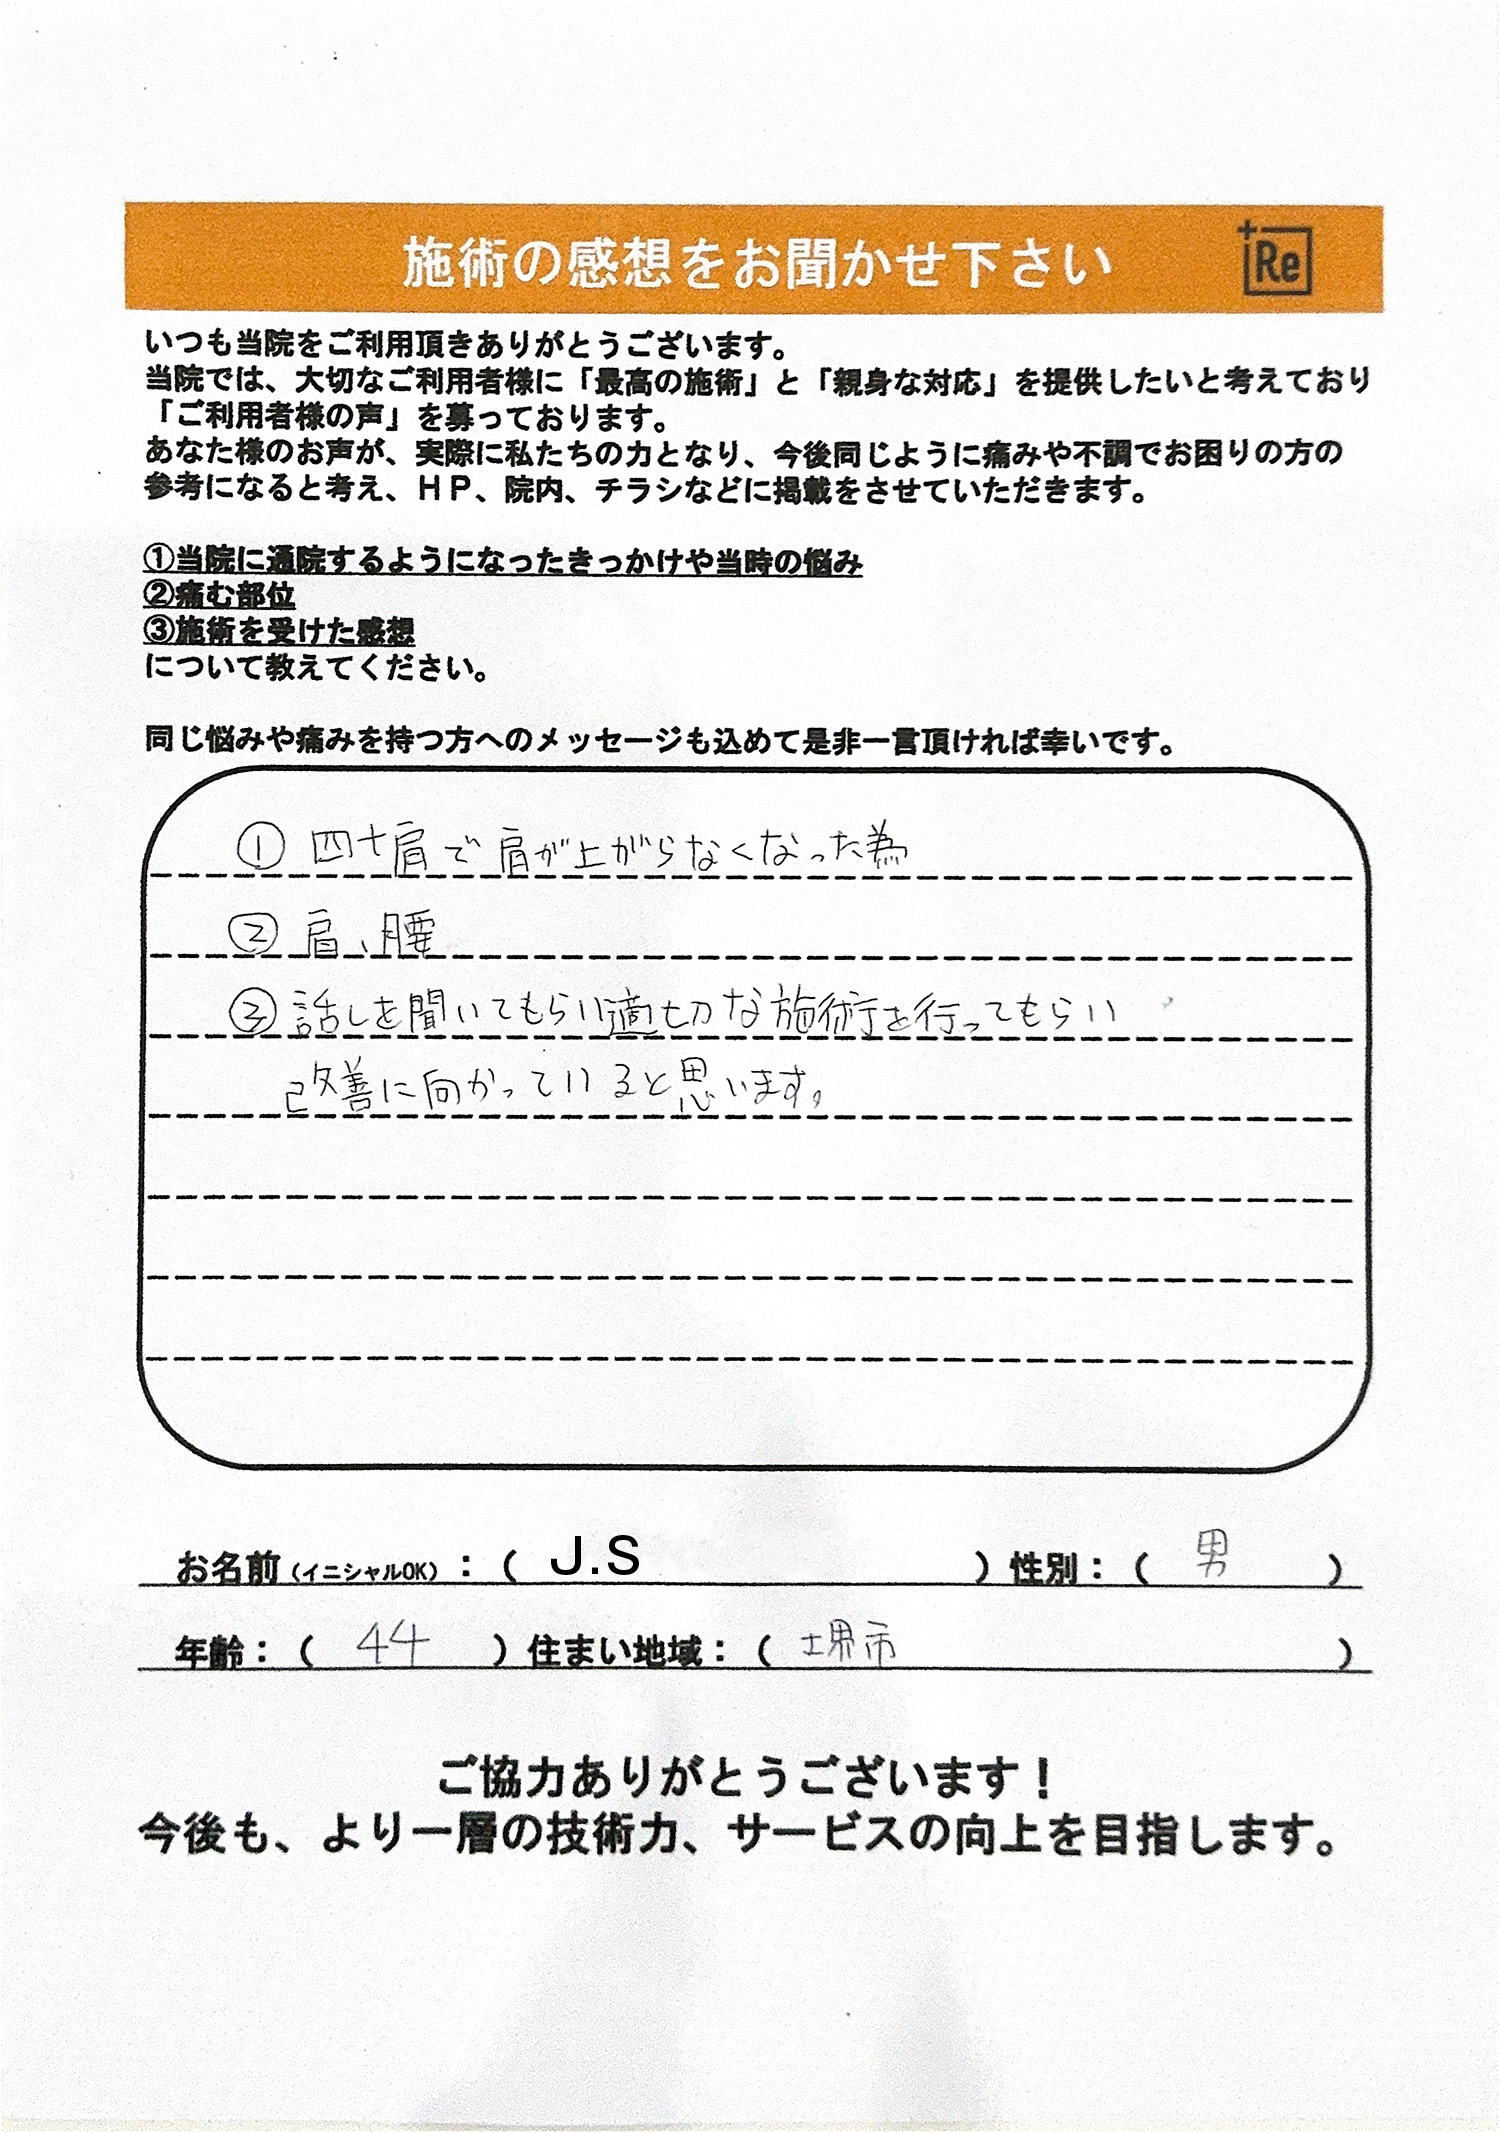 施術の感想をお聞かせ下さい
+Re
いつも当院をご利用頂きありがとうございます。
当院では、大切なご利用者様に「最高の施術」と「親身な対応」を提供したいと考えており
「ご利用者様の声」を募っております。
あなた様のお声が、実際に私たちの力となり、今後同じように痛みや不調でお困りの方の
参考になると考え、ＨＰ、院内、チラシなどに掲載をさせていただきます。
①当院に通院するようになったきっかけや当時の悩み
②痛む部位
③施術を受けた感想
について教えてください。
同じ悩みや痛みを持つ方へのメッセージも込めて是非一言頂ければ幸いです。
① 四十肩で肩が上がらなくなった為
② 肩、腰
③ 話しを聞いてもらい適切な施術を行ってもらい
改善に向かっていると思います。
お名前（イニシャルOK）：（ J.S ）性別：（ 男 ）
年齢：（ 44 ）住まい地域：（ 堺市 ）
ご協力ありがとうございます！
今後も、より一層の技術力、サービスの向上を目指します。